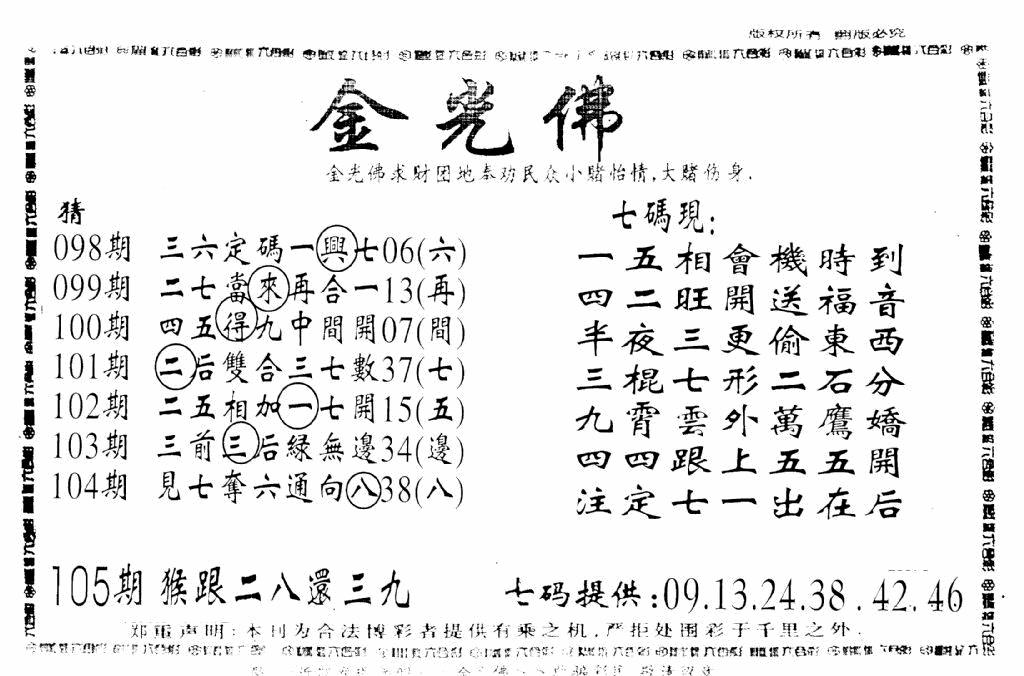 版权所有 翻版必究
金光佛
金光佛求财团地奉劝民众小赌怡情,大赌伤身.
猜
098期 三六定碼一興七06(六)
099期 二七當來再合一13(再)
100期 四五得九中間開07(間)
101期 二后雙合三七數37(七)
102期 二五相加一七開15(五)
103期 三前三后緑無邊34(邊)
104期 見七奪六通向八38(八)
七碼現:
一五相會機時到
四二旺開送福音
半夜三更偷東西
三棍七形二石分
九霄雲外萬鷹嬌
四四跟上五五開
注定七一出在后
105期 猴跟二八還三九
七码提供:09.13.24.38.42.46
郑重声明:本刊为合法博彩者提供有乘之机,严拒处围彩于千里之外.